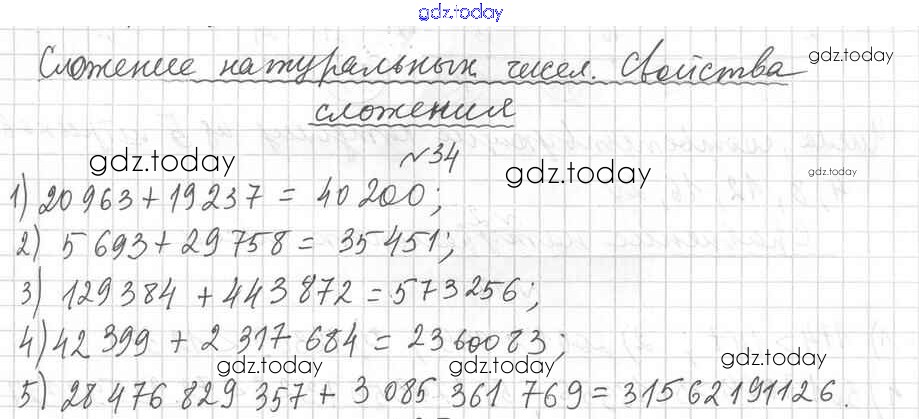 gdz.today
Сложение натуральных чисел. Свойства
gdz.today
сложения
gdz.today
№34
gdz.today
gdz.today
1) 20 963 + 19 237 = 40 200;
2) 5 693 + 29 758 = 35 451;
3) 129 384 + 443 872 = 573 256;
4) 42 399 + 2 317 684 = 2360083;
gdz.today
gdz.today
gdz.today
5) 28 476 829 357 + 3 085 361 769 = 31562191126.